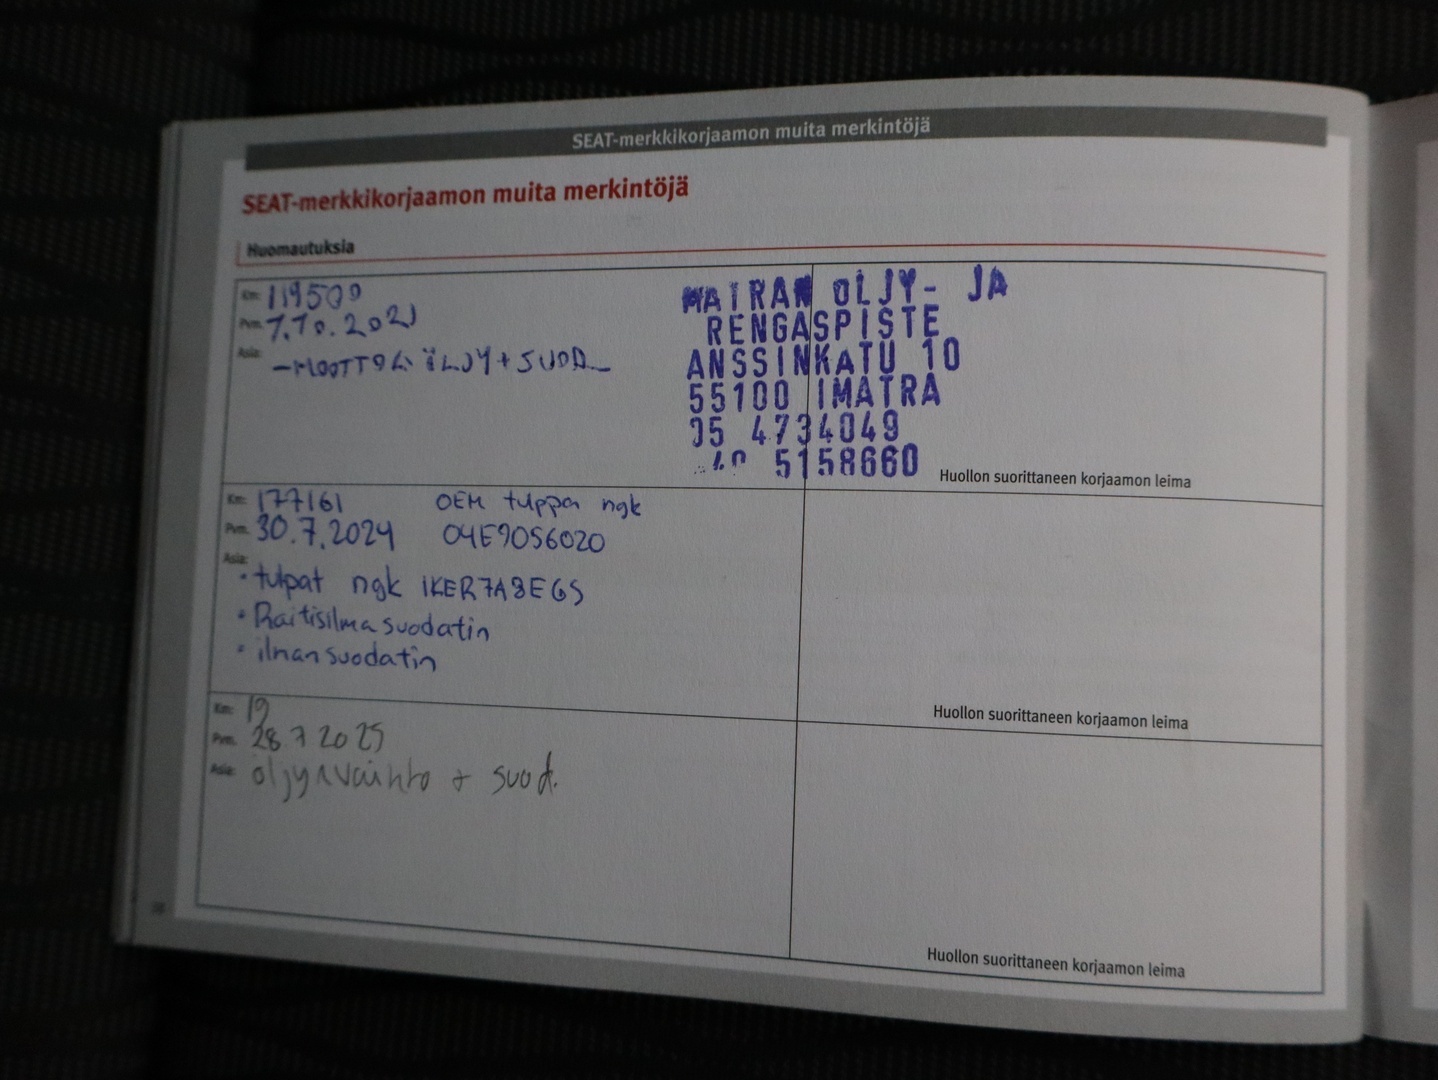 SEAT-merkkikorjaamon muita merkintöjä
SEAT-merkkikorjaamon muita merkintöjä
Huomautuksia
Km: 119500
Pvm. 7.10.2021
Asia:
-MOOTTORI ÖLJY + SUOD.
MAIRAN OLJY- JA
RENGASPISTE
ANSSINKATU 10
55100 IMATRA
05 4734049
40 5158660
Huollon suorittaneen korjaamon leima
Km: 177161 OEM tulppa ngk
Pvm. 30.7.2024 04E905602D
Asia:
• tulpat ngk IKER7A8EGS
• Raitisilmasuodatin
• ilmansuodatin
Huollon suorittaneen korjaamon leima
Km: 19
Pvm. 28.7 2025
Asia: öljynvaihto + suod.
Huollon suorittaneen korjaamon leima